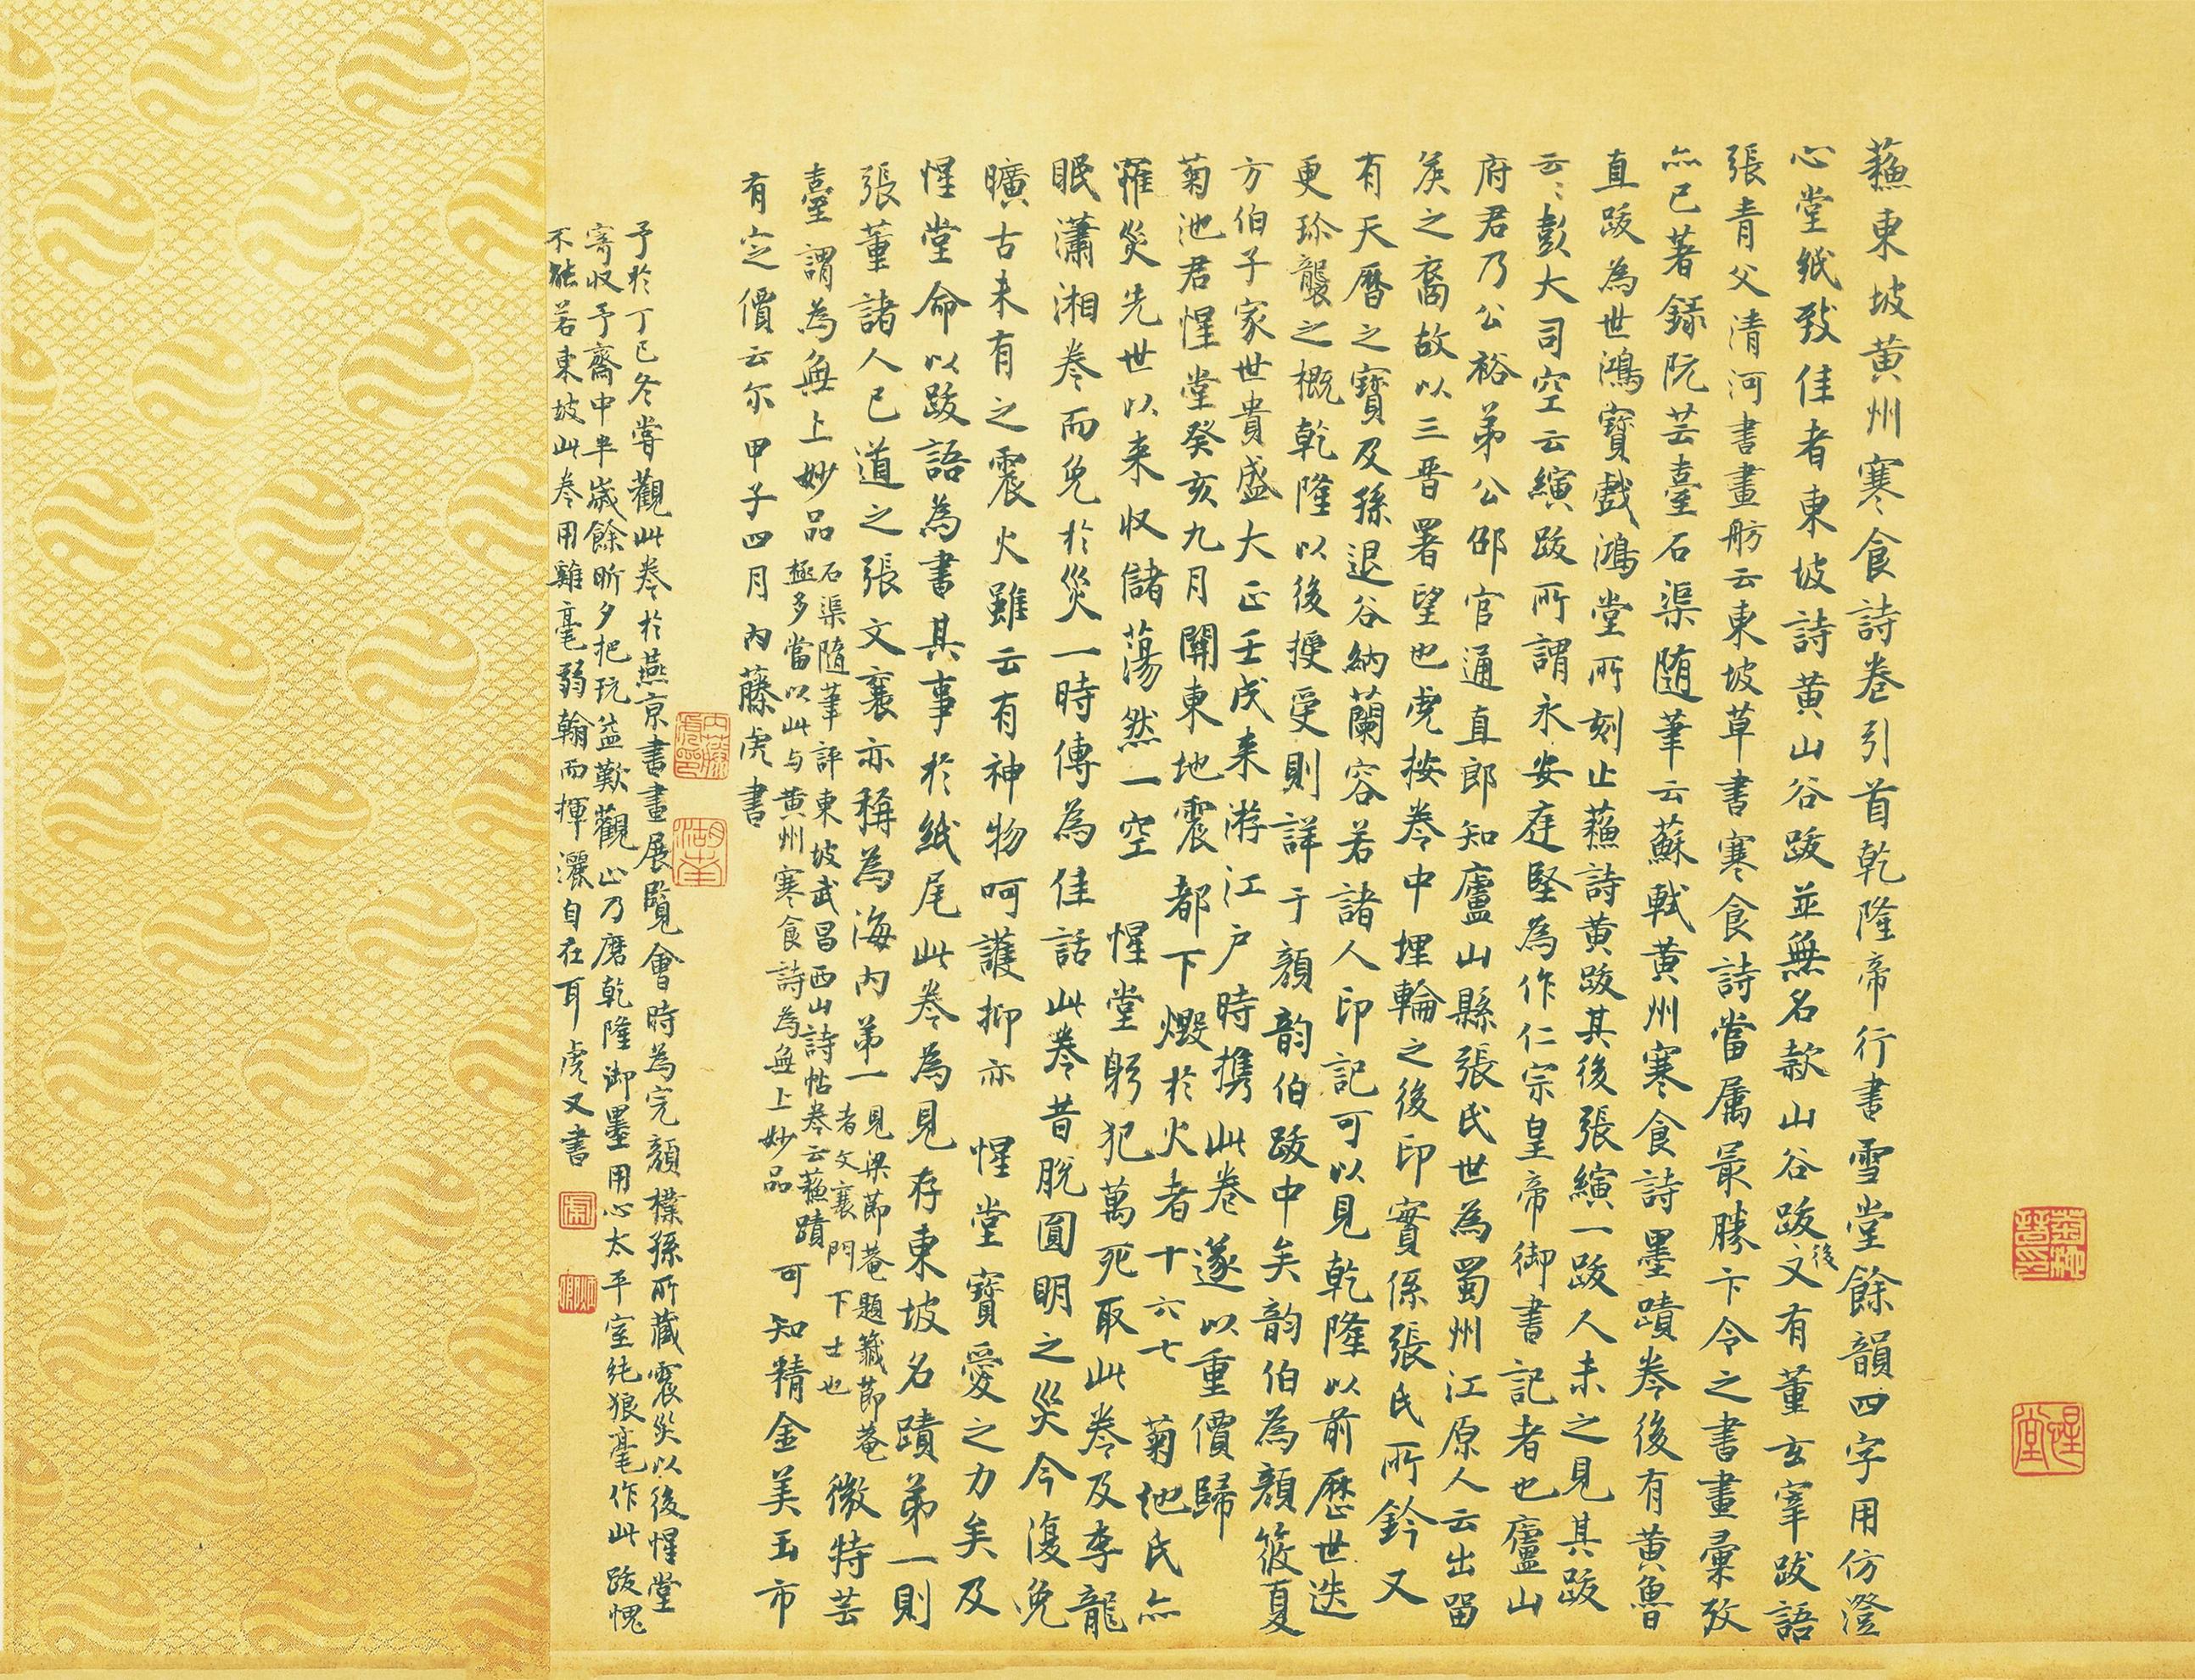 蘓東坡黄州寒食詩巻引首乾隆帝行書雪堂餘韻四字用仿澄
心堂紙致佳者東坡詩黄山谷跋並無名款山谷跋後文有董玄宰跋語
張青父清河書畫舫云東坡草書寒食詩當属最勝卞令之書畫彙攷
亦已著録阮芸臺石渠随筆云蘇軾黄州寒食詩墨蹟巻後有黄魯
直跋為世鴻寶戲鴻堂所刻止蘓詩黄跋其後張縯一跋人未之見其跋
云〻彭大司空云縯跋所謂永安庭堅為作仁宗皇帝御書記者也廬山
府君乃公裕弟公邵官通直郎知廬山縣張氏世為蜀州江原人云出留
矦之裔故以三晋署望也虎按巻中埋輪之後印實係張氏所鈐又
有天暦之寶及孫退谷納蘭容若諸人印記可以見乾隆以前歴世迭
更珎襲之概乾隆以後授受則詳于顔韵伯跋中矣韵伯為顔筱夏
方伯子家世貴盛大正壬戌来游江戸時携此巻遂以重價歸
菊池君惺堂癸亥九月關東地震都下燬於火者十六七菊池氏亦
罹災先世以来収儲蕩然一空惺堂躬犯萬死取此巻及李龍
眠瀟湘巻而免於災一時傳為佳話此巻昔脱圓明之災今復免
曠古未有之震火雖云有神物呵護抑亦惺堂寶愛之力矣及
惺堂命以跋語為書其事於紙尾此巻為見存東坡名蹟弟一則
張董諸人已道之張文襄亦稱為海内弟一見梁節菴題籤節菴
者文襄門下士也微特芸
臺謂為無上妙品石渠隨筆評東坡武昌西山詩帖巻云蘓蹟
極多當以此与黄州寒食詩為無上妙品可知精金美玉市
有定價云尓甲子四月内藤虎書
予於丁巳冬嘗觀此巻於燕京書畫展覧會時為完顔樸孫所蔵震災以後惺堂
寄収予齋中半歳餘昕夕把玩益歎觀止乃磨乾隆御墨用心太平室純狼毫作此跋愧
不能若東坡此巻用雞毫弱翰而揮灑自在耳虎又書